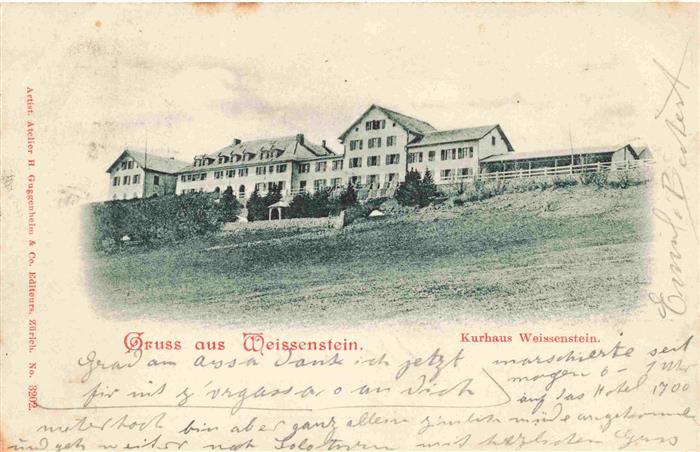 Artist. Atelier H. Guggenheim & Co. Editeurs, Zürich. No. 3202.
Gruss aus Weissenstein.
Kurhaus Weissenstein.
Grad am ässä dänk ich jetzt marschierte seit
für nit z'vrgässä o an dich morgen 6 - 1 Uhr
auf das Hotel 1700
meterhoch bin aber ganz allein ziemlich müde angekommen
und geh weiter nach Solothurn mit herzlichen Gruss
Emil